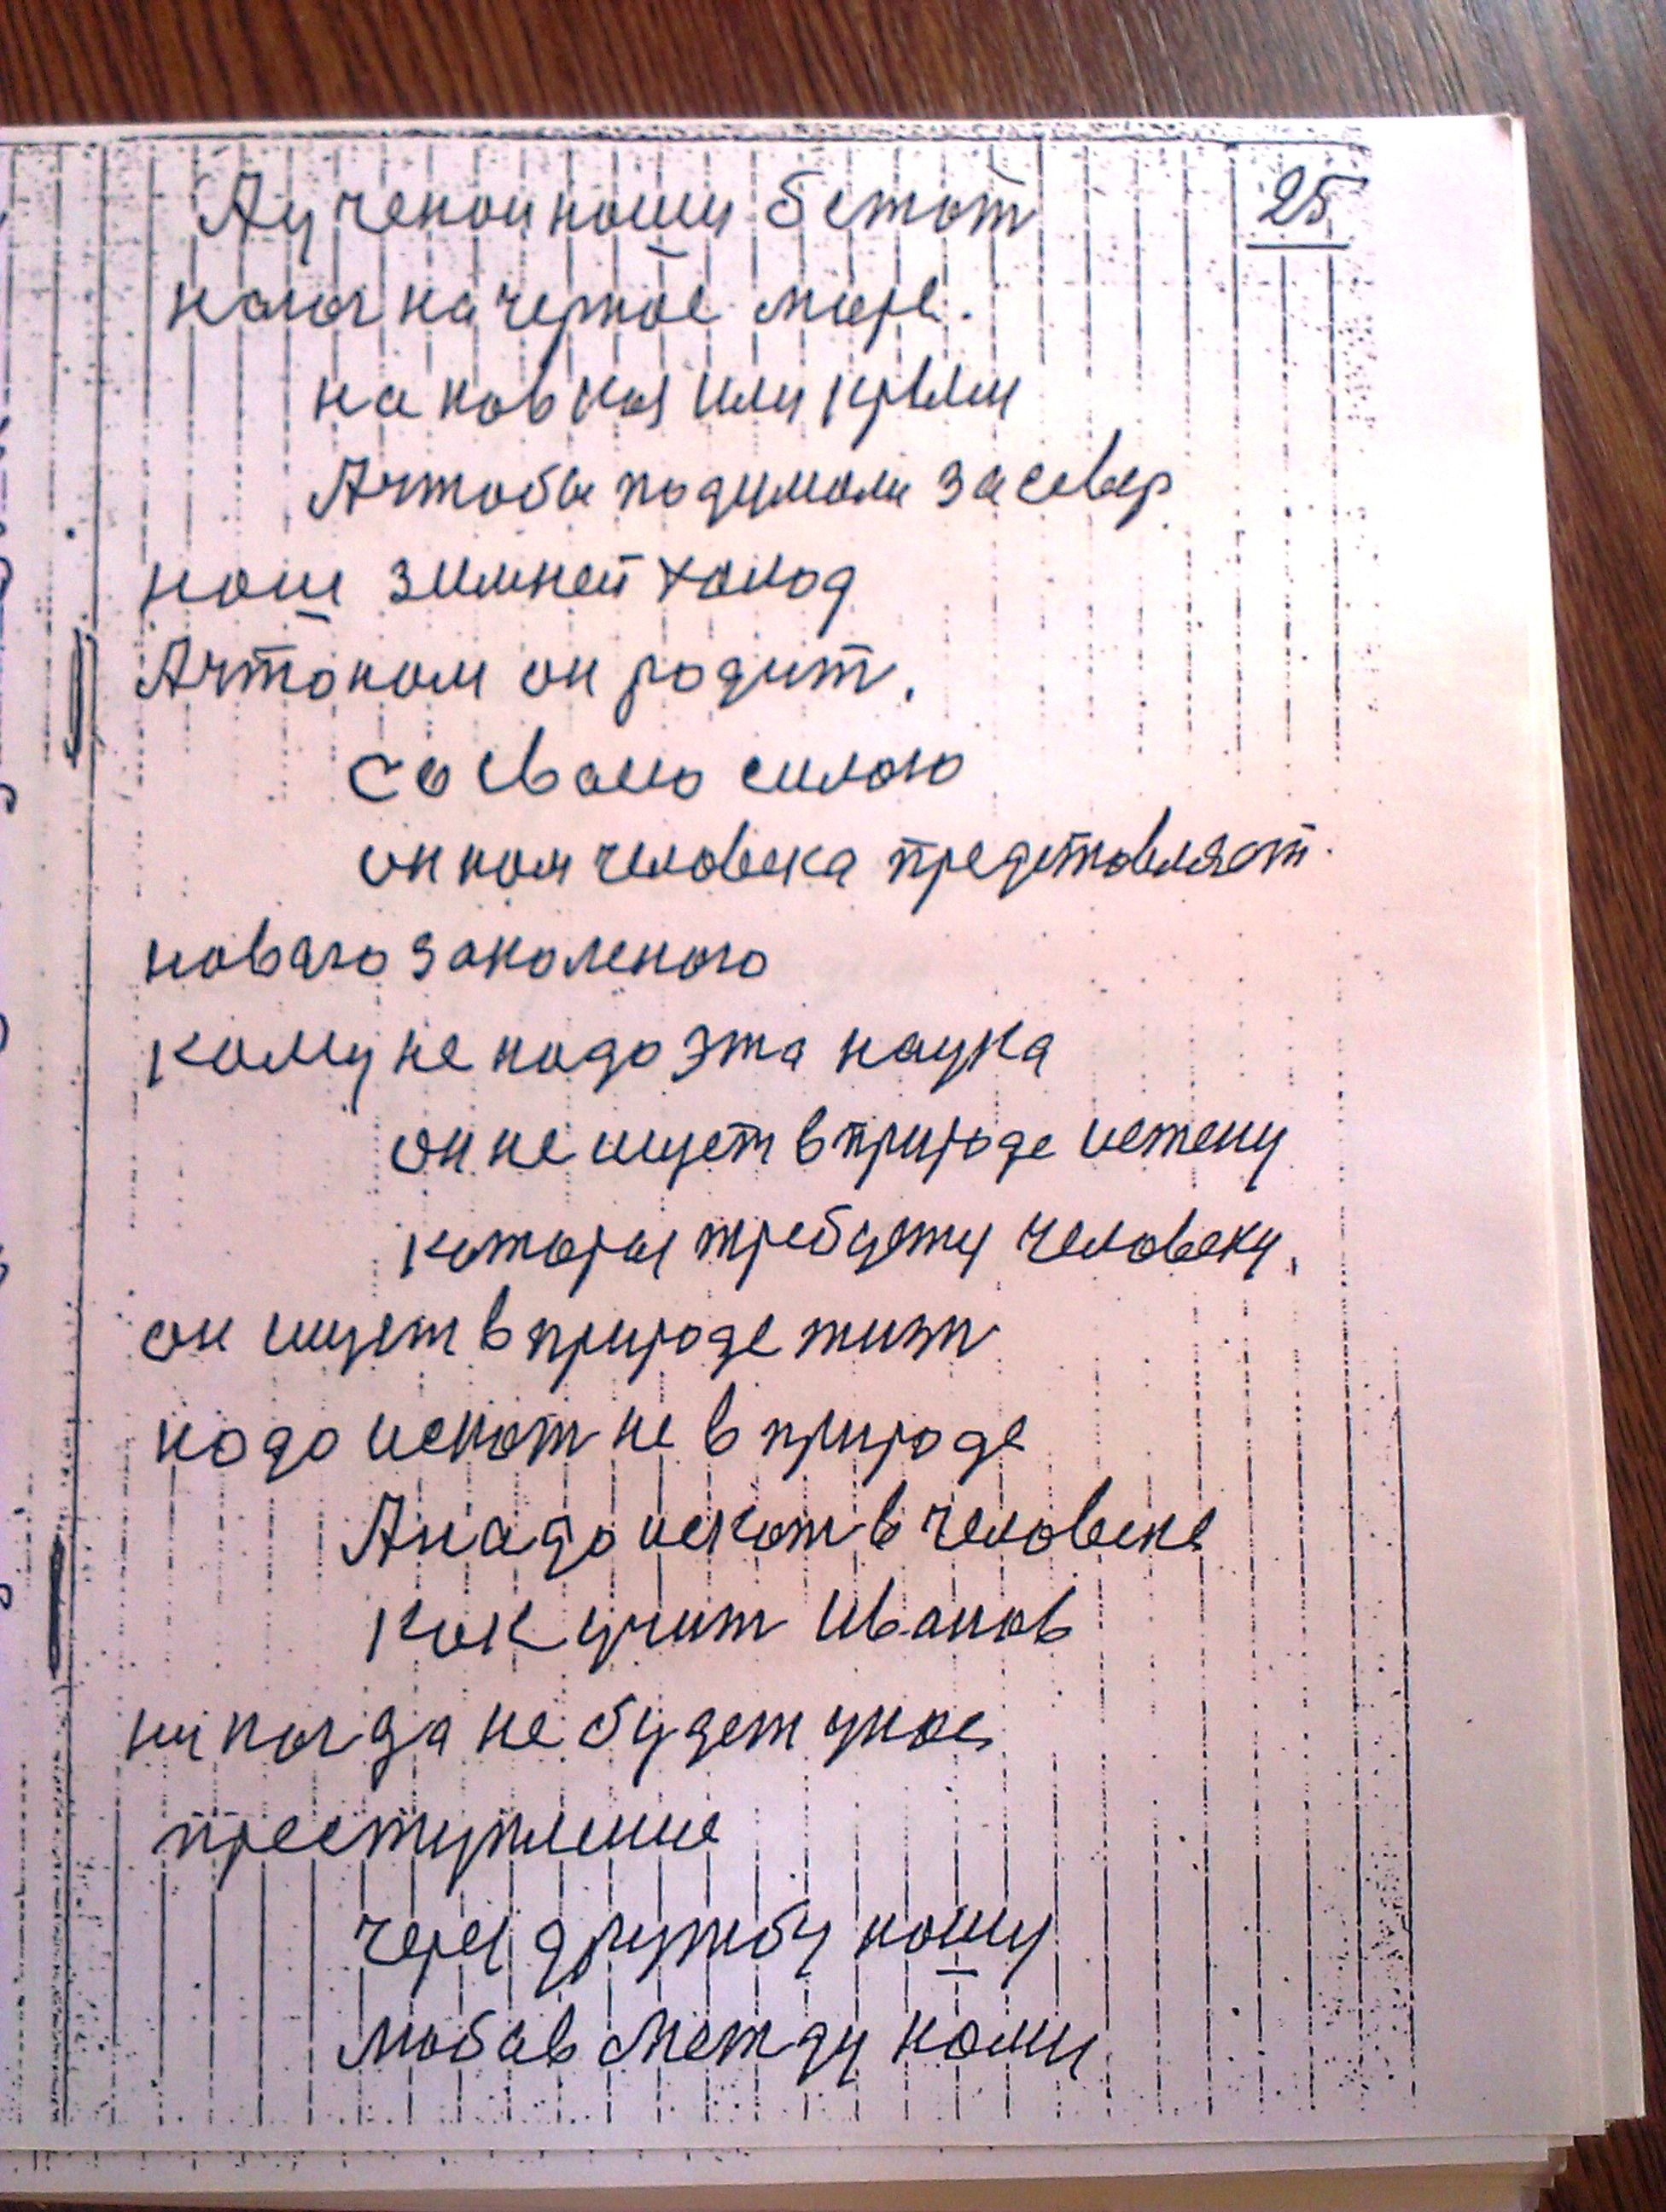 25
Аученои наши бетат
нагаг на черное море.
на Кавказ или крым
А чтобы подумали за север
наш зимней холод
А что нам он родит.
со своею силою
он нам человека представляет.
новаго закаленого
кому не надо эта наука
он не ищет в природе истену
которая требует у человеку,
он ищет в природе жизн
надо искат не в природе
А надо искат в человеке
как учит Иванов
никагда не будет у нас
преступление
через дружбу нашу
любов между нами